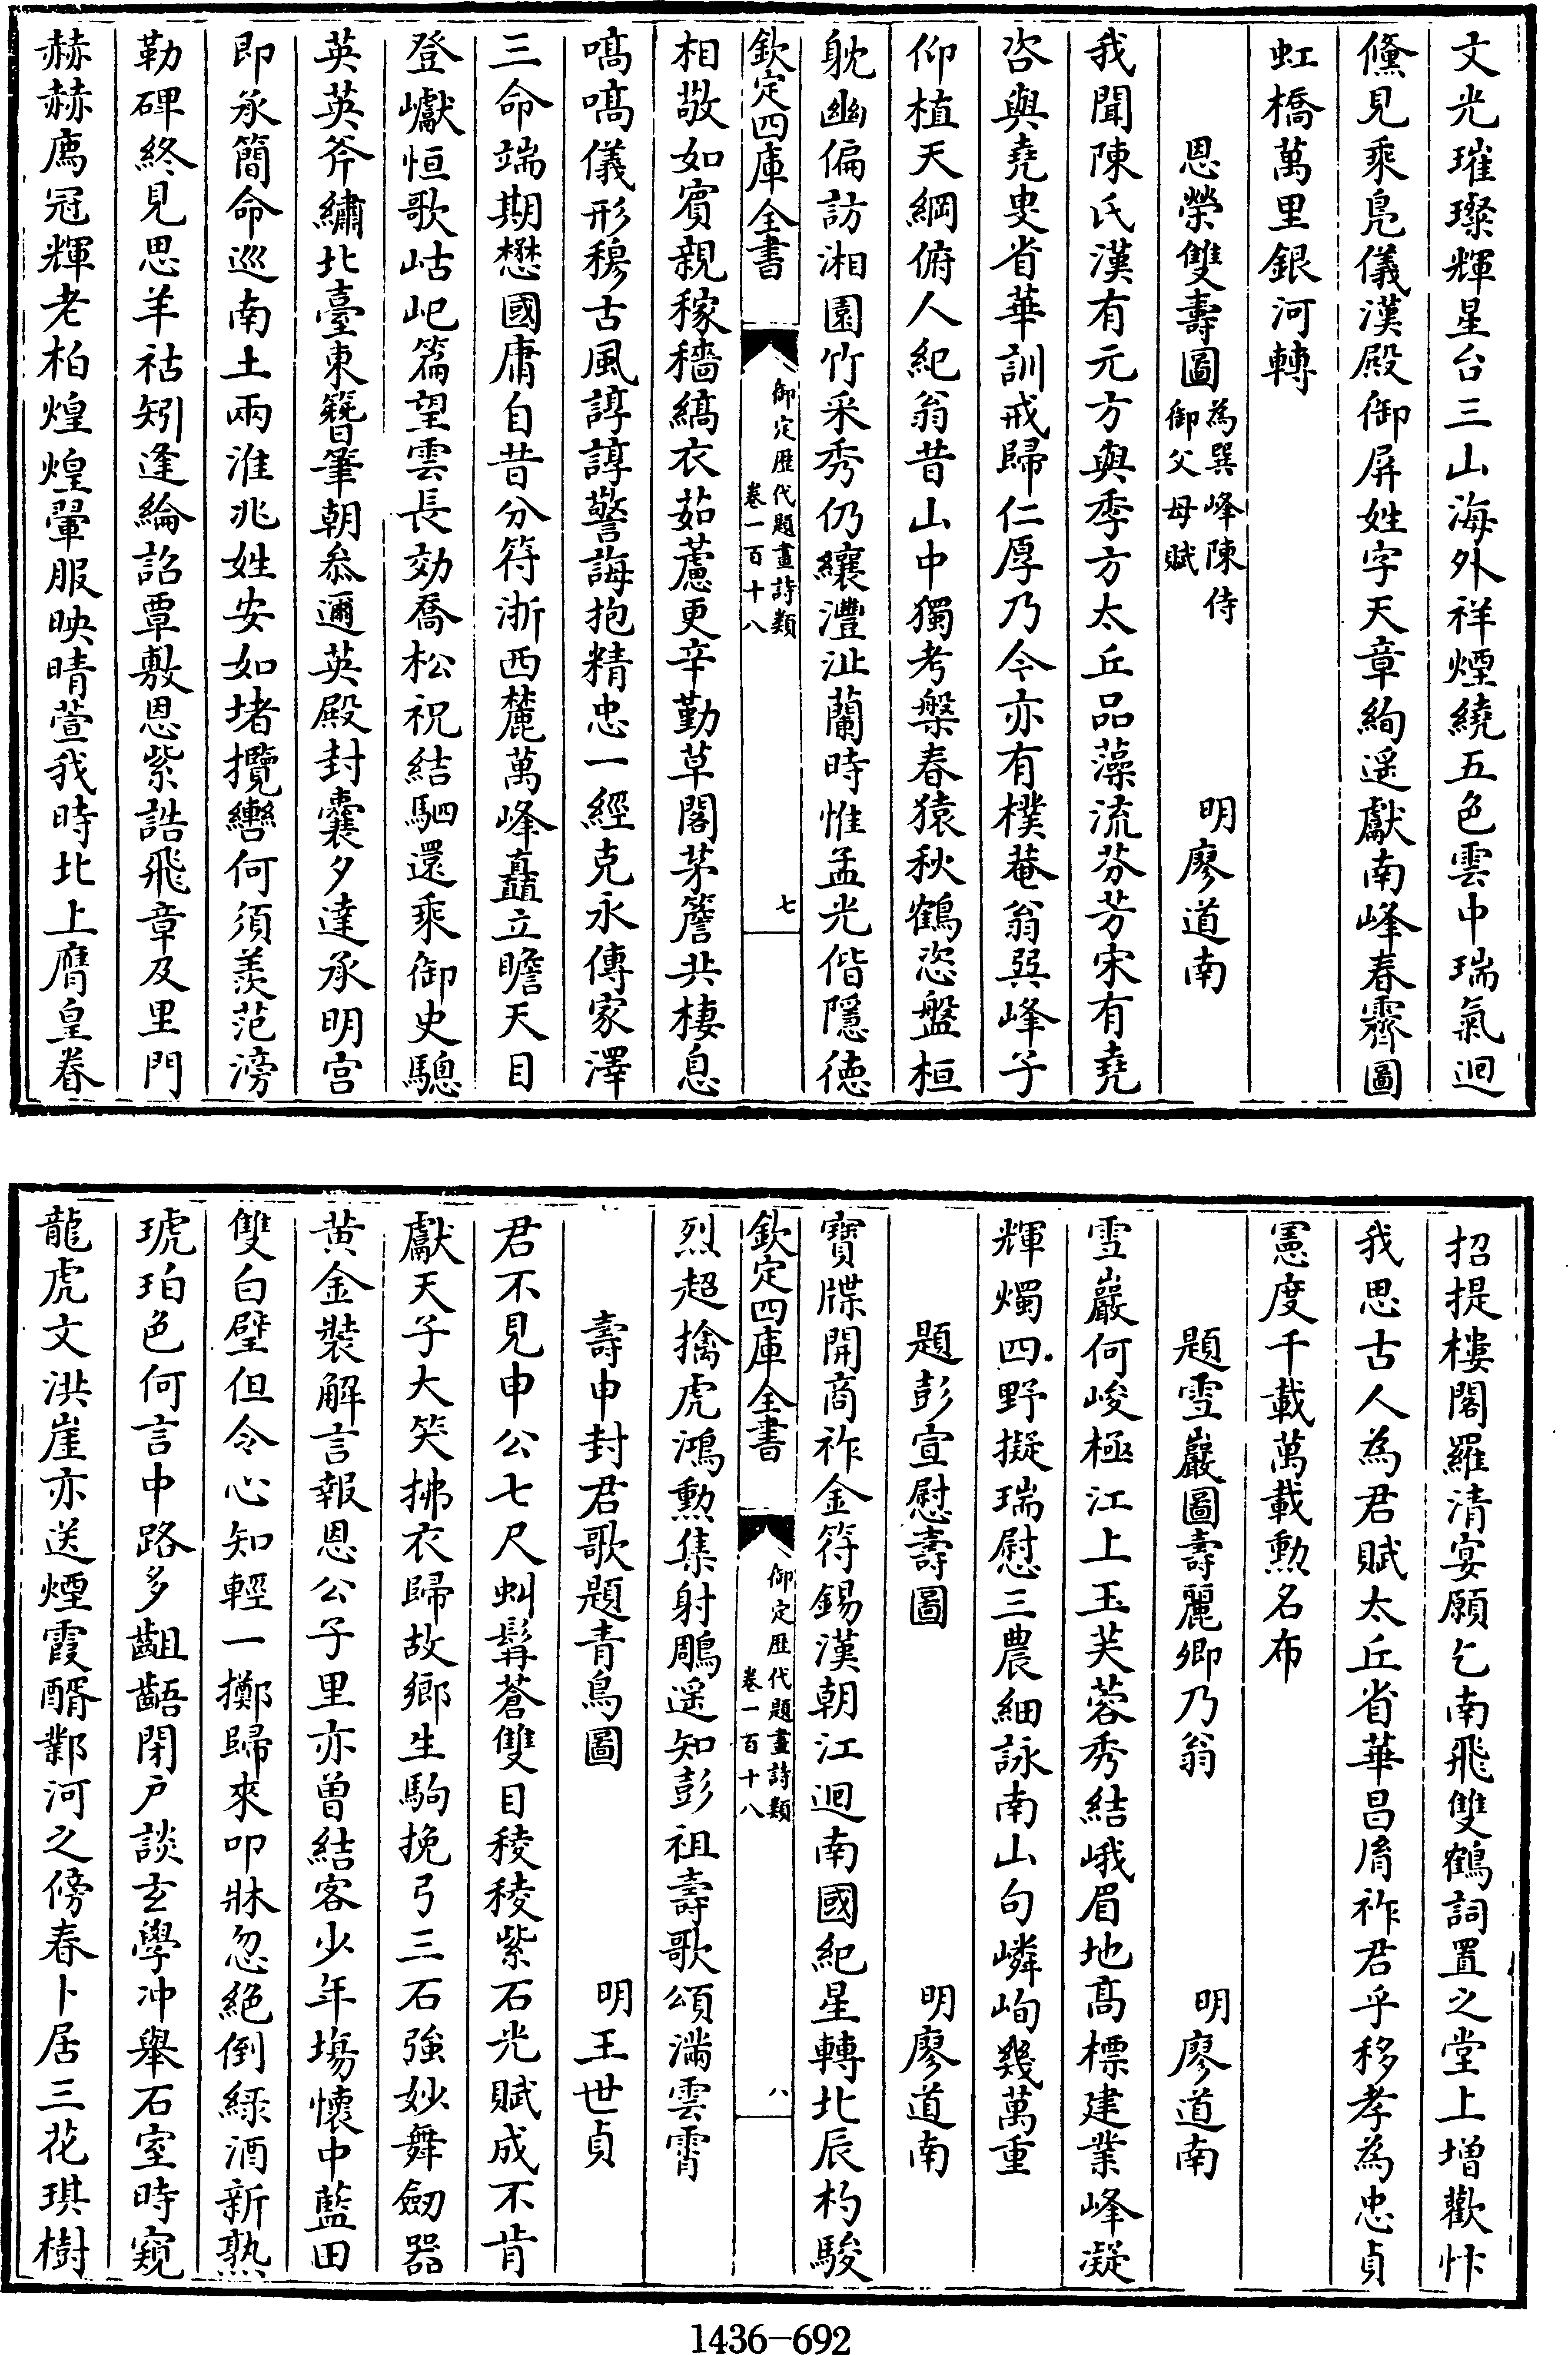 文光璀璨輝星台三山海外祥煙繞五色雲中瑞氣迴
儵見乘鳬儀漢殿御屏姓字天章絢遥獻南峰春霽圖
虹橋萬里銀河轉
恩榮雙壽圖為巽峰陳侍御父母賦 明廖道南
我聞陳氏漢有元方與季方太丘品藻流芬芳宋有堯
咨與堯叟省華訓戒歸仁厚乃今亦有樸菴翁巽峰子
仰植天綱俯人紀翁昔山中獨考槃春猿秋鶴恣盤桓
躭幽偏訪湘園竹采秀仍纕澧沚蘭時惟孟光偕隱徳
欽定四庫全書 御定歴代題畫詩類 卷一百十八 七
相敬如賔親稼穡縞衣茹藘更辛勤草閣茅簷共棲息
嗃嗃儀形穆古風諄諄警誨抱精忠一經克永傳家澤
三命端期懋國庸自昔分符浙西麓萬峰矗立瞻天目
登巘恒歌岵屺篇望雲長効喬松祝結駟還乘御史驄
英英斧繡北臺東簪筆朝叅邇英殿封囊夕達承明宫
即承簡命巡南土兩淮兆姓安如堵攬轡何須羨范滂
勒碑終見思羊祜矧逢綸詔覃敷恩紫誥飛章及里門
赫赫廌冠輝老柏煌煌翬服映晴萱我時北上膺皇眷
招提樓閣羅清宴願乞南飛雙鶴詞置之堂上增歡忭
我思古人為君賦太丘省華昌脩祚君乎移孝為忠貞
憲度千載萬載勲名布
題雪巖圖壽麗卿乃翁 明廖道南
雪巖何峻極江上玉芙蓉秀結峨眉地髙標建業峰凝
輝燭四野擬瑞慰三農細詠南山句嶙峋幾萬重
題彭宣慰壽圖 明廖道南
寶牒開商祚金符錫漢朝江迴南國紀星轉北辰杓駿
欽定四庫全書 御定歴代題畫詩類 卷一百十八 八
烈超擒虎鴻勲集射鵰遥知彭祖壽歌頌滿雲霄
壽申封君歌題青鳥圖 明王世貞
君不見申公七尺虯髯蒼雙目稜稜紫石光賦成不肯
獻天子大笑拂衣歸故鄉生駒挽弓三石強妙舞劒器
黄金裝解言報恩公子里亦曽結客少年塲懷中藍田
雙白璧但令心知輕一擲歸來叩牀忽絶倒緑酒新熟
琥珀色何言中路多齟齬閉户談玄學冲舉石室時窺
龍虎文洪崖亦送煙霞醑鄴河之傍春卜居三花琪樹
1436-692